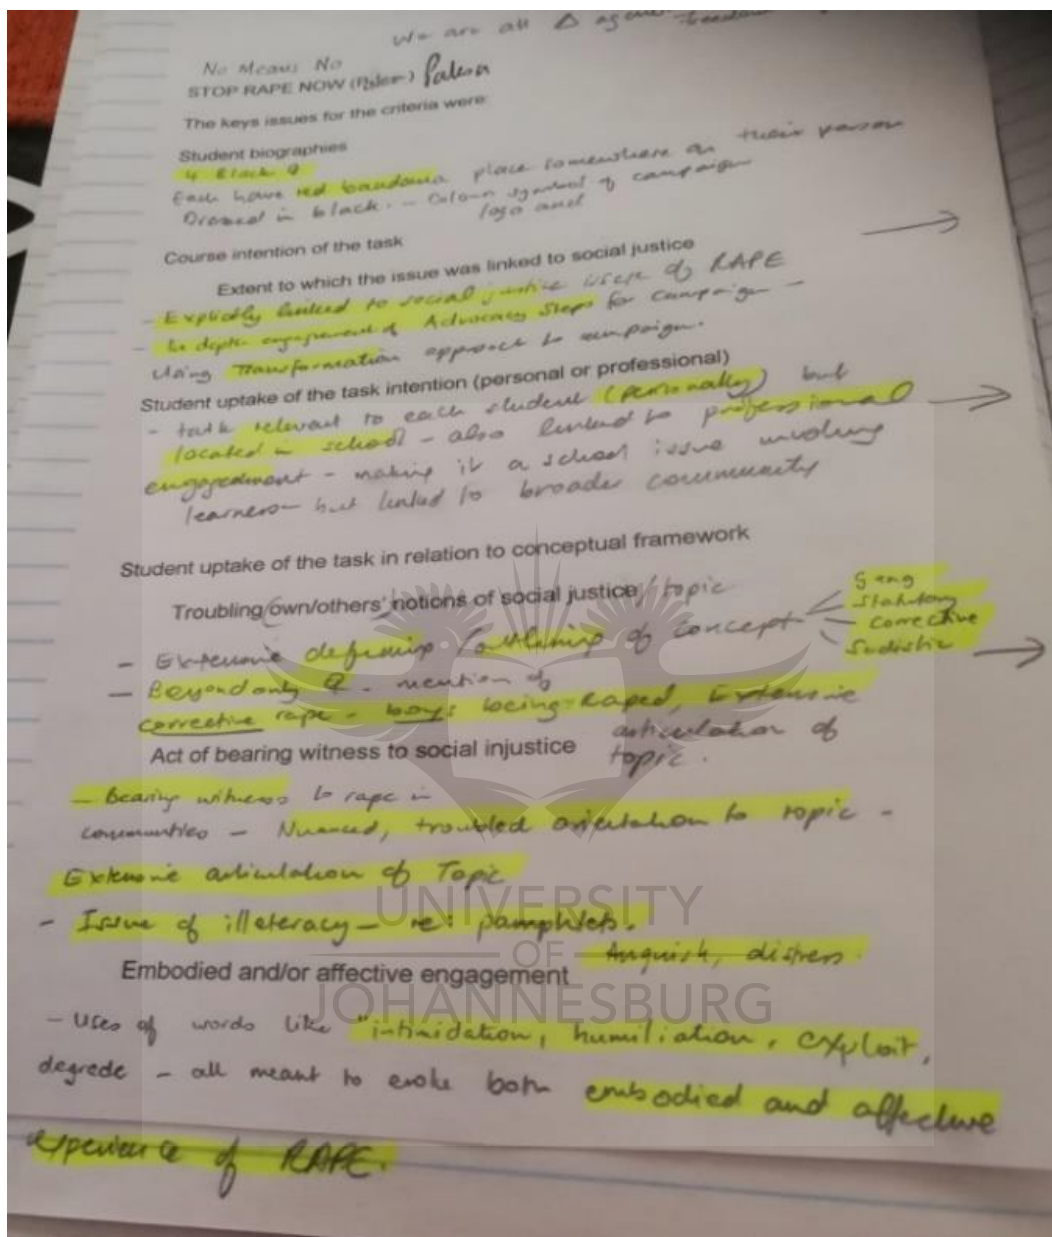 We are all Δ
No Means No
STOP RAPE NOW
The keys issues for the criteria were:
Student biographies
4 Black ♀
Each have red bandanna place somewhere on their person
Dressed in black. – Colour symbol of campaign
logo and
Course intention of the task
Extent to which the issue was linked to social justice
- Explicitly linked to social justice issue of RAPE
- In depth engagement of Advocacy Steps for campaign –
Using Transformation approach to campaign.
Student uptake of the task intention (personal or professional)
- task relevant to each student (personally) but
located in school – also linked to professional
engagement – making it a school issue involving
learners – but linked to broader community
Student uptake of the task in relation to conceptual framework
Troubling/own/others' notions of social justice/topic
Gang
Statutory
Corrective
Sadistic
- Extensive defining / outlining of concept
- Beyond only ♀ - mention of
corrective rape - boys being raped, Extensive
articulation of
topic.
Act of bearing witness to social injustice
- Bearing witness to rape in
communities – Nuanced, troubled orientation to topic –
Extensive articulation of Topic
- Issue of illeteracy – re: pamphlets.
Anguish, distress.
Embodied and/or affective engagement
- Uses of words like "intimidation, humiliation, exploit,
degrede – all meant to evoke both embodied and affective
experience of RAPE.
UNIVERSITY
OF
JOHANNESBURG